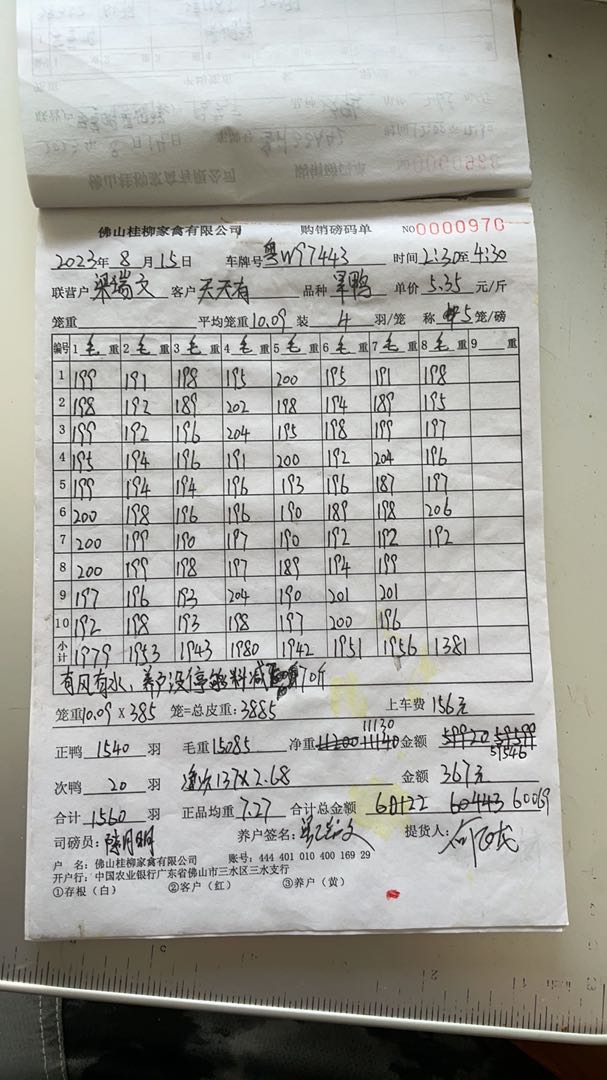 佛山桂柳家禽有限公司 购销磅码单 NO0000970
2023年 8月15日 车牌号粤W97443 时间2:30至4:30
联营户梁瑞文 客户天天有 品种旱鸭 单价5.35元/斤
笼重 平均笼重10.09 装4羽/笼 称5笼/磅
编号 1毛重 2毛重 3毛重 4毛重 5毛重 6毛重 7毛重 8毛重 9重
1 199 191 198 195 200 195 191 198
2 198 192 189 202 198 194 189 195
3 199 192 196 204 195 198 199 197
4 195 194 196 191 200 192 204 196
5 199 194 194 196 193 196 187 197
6 200 198 196 196 190 189 198 206
7 200 199 190 197 190 192 192 192
8 200 199 198 197 189 194 199
9 197 196 193 204 190 201 201
10 192 198 193 198 197 200 196
小计 1979 1953 1943 1980 1942 1951 1956 1381
有风有水、养户没停料减70斤
笼重10.09×385笼=总皮重:3885 上车费156元
11130
正鸭1540羽 毛重15085 净重11200 11140 金额59920 59599
59546
次鸭20羽 137×2.68 金额367元
合计1560羽 正品均重7.27 合计总金额60122 60443 60069
司磅员: 养户签名: 提货人:
户 名:佛山桂柳家禽有限公司 账号:444 401 010 400 169 29
开户行:中国农业银行广东省佛山市三水区三水支行
①存根(白) ②客户(红) ③养户(黄)